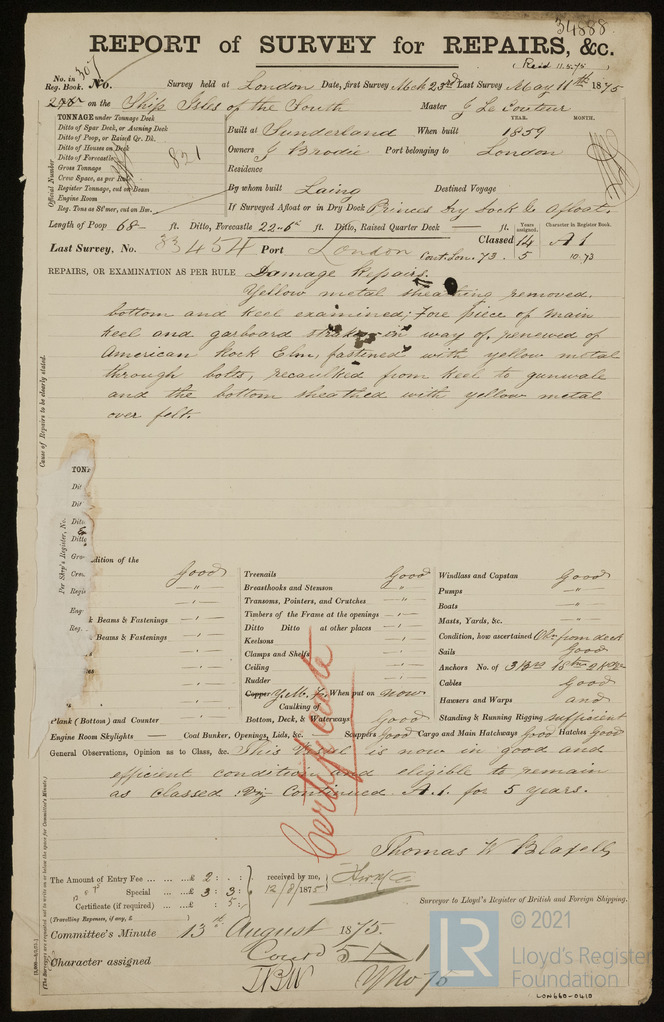 34888
REPORT of SURVEY for REPAIRS, &c.
(Recd 11.8.75
No. in Reg. Book. 307 No. Survey held at London Date, first Survey Mch 23rd Last Survey May 11th 1875
on the Ship Isles of the South Master J Le Couteur
TONNAGE under Tonnage Deck
Ditto of Spar Deck, or Awning Deck
Ditto of Poop, or Raised Qr. Dk.
Ditto of Houses on Deck
Ditto of Forecastle
Gross Tonnage 821
Crew Space, as per Rule
Register Tonnage, cut on Beam
Engine Room
Reg. Tons as St'mer, cut on Bm.
Official Number
YEAR. MONTH.
Built at Sunderland When built 1859
Owners J Brodie Port belonging to London
Residence
By whom built Laing Destined Voyage
If Surveyed Afloat or in Dry Dock Princes Dry Dock & Afloat
Length of Poop 68 - ft. Ditto, Forecastle 22-6 ft. Ditto, Raised Quarter Deck — ft. Years assigned. Character in Register Book.
Last Survey, No. 33454 Port London Classed 14 A 1
Cont. Lon. 73. 5 10.73
REPAIRS, OR EXAMINATION AS PER RULE Damage Repairs.
Yellow metal sheathing removed.
bottom and keel examined; Fore piece of main
keel and garboard strakes in way of, renewed of
American Rock Elm, fastened with yellow metal
through bolts, recaulked from keel to gunwale
and the bottom sheathed with yellow metal
over felt.
Cause of Repairs to be clearly stated.
TON
Dit
Dit
Ditto
Ditto
Gro
Crew
Regis
Eng
Reg.
Per Ship's Register, No.
dition of the
Good
k Beams & Fastenings
Beams & Fastenings
Plank (Bottom) and Counter
Treenails Good
Breasthooks and Stemson "
Transoms, Pointers, and Crutches "
Timbers of the Frame at the openings "
Ditto Ditto at other places "
Keelsons "
Clamps and Shelfs "
Ceiling "
Rudder "
Copper Y.M. When put on now
Caulking of
Bottom, Deck, & Waterways Good
Windlass and Capstan Good
Pumps "
Boats "
Masts, Yards, &c. "
Condition, how ascertained Obs. from deck
Sails Good
Anchors No. of
Cables Good
Hawsers and Warps and
Standing & Running Rigging sufficient
Engine Room Skylights — Coal Bunker, Openings, Lids, &c. Scuppers Good Cargo and Main Hatchways Good Hatches Good
General Observations, Opinion as to Class, &c. This Vessel is now in good and
efficient condition and eligible to remain
as classed: Continued A.1. for 5 years.
Certificate
Thomas W Blaxell
The Amount of Entry Fee ... £ 2 : :
Special ... £ 3 : 3 :
Certificate (if required) ... £ : 5 :
(Travelling Expenses, if any, £ )
received by me,
12/8/1875
Surveyor to Lloyd's Register of British and Foreign Shipping.
Committee's Minute 13th August 1875.
Character assigned Contd 5 A 1
(The Surveyors are requested not to write on or below the space for Committee's Minute.)
© 2021
LR
Lloyd's Register
Foundation
LON660-0410